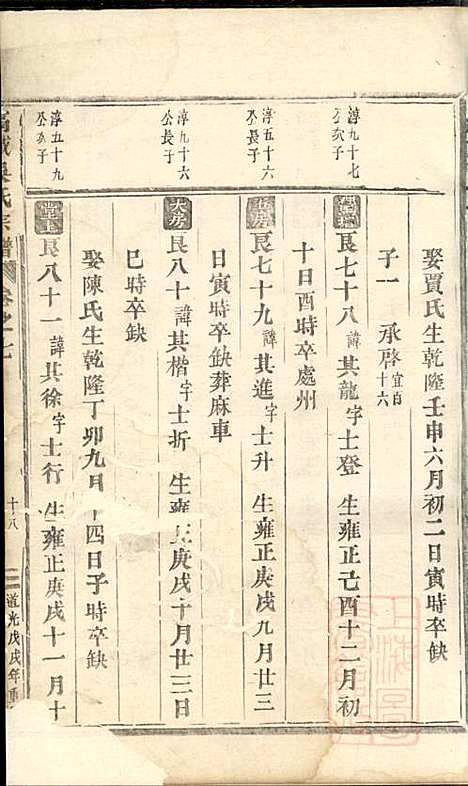 娶賈氏生乾隆壬申六月初二日寅時卒缺
子一 承啓宜百十六
淳九十七公次子
艮七十八諱其龍字士登 生雍正己酉十二月初
十日酉時卒處州
淳五十六公長子
艮七十九諱其進字士升 生雍正庚戌九月廿三
日寅時卒缺葬麻車
淳九十六公長子
大房 艮八十諱其楷字士折 生雍正庚戌十月廿三日
巳時卒缺
娶陳氏生乾隆丁卯九月十四日子時卒缺
淳五十九公次子
艮八十一諱其徐字士行 生雍正庚戌十一月十
氏宗譜 卷之七 十八 道光戊戌年重